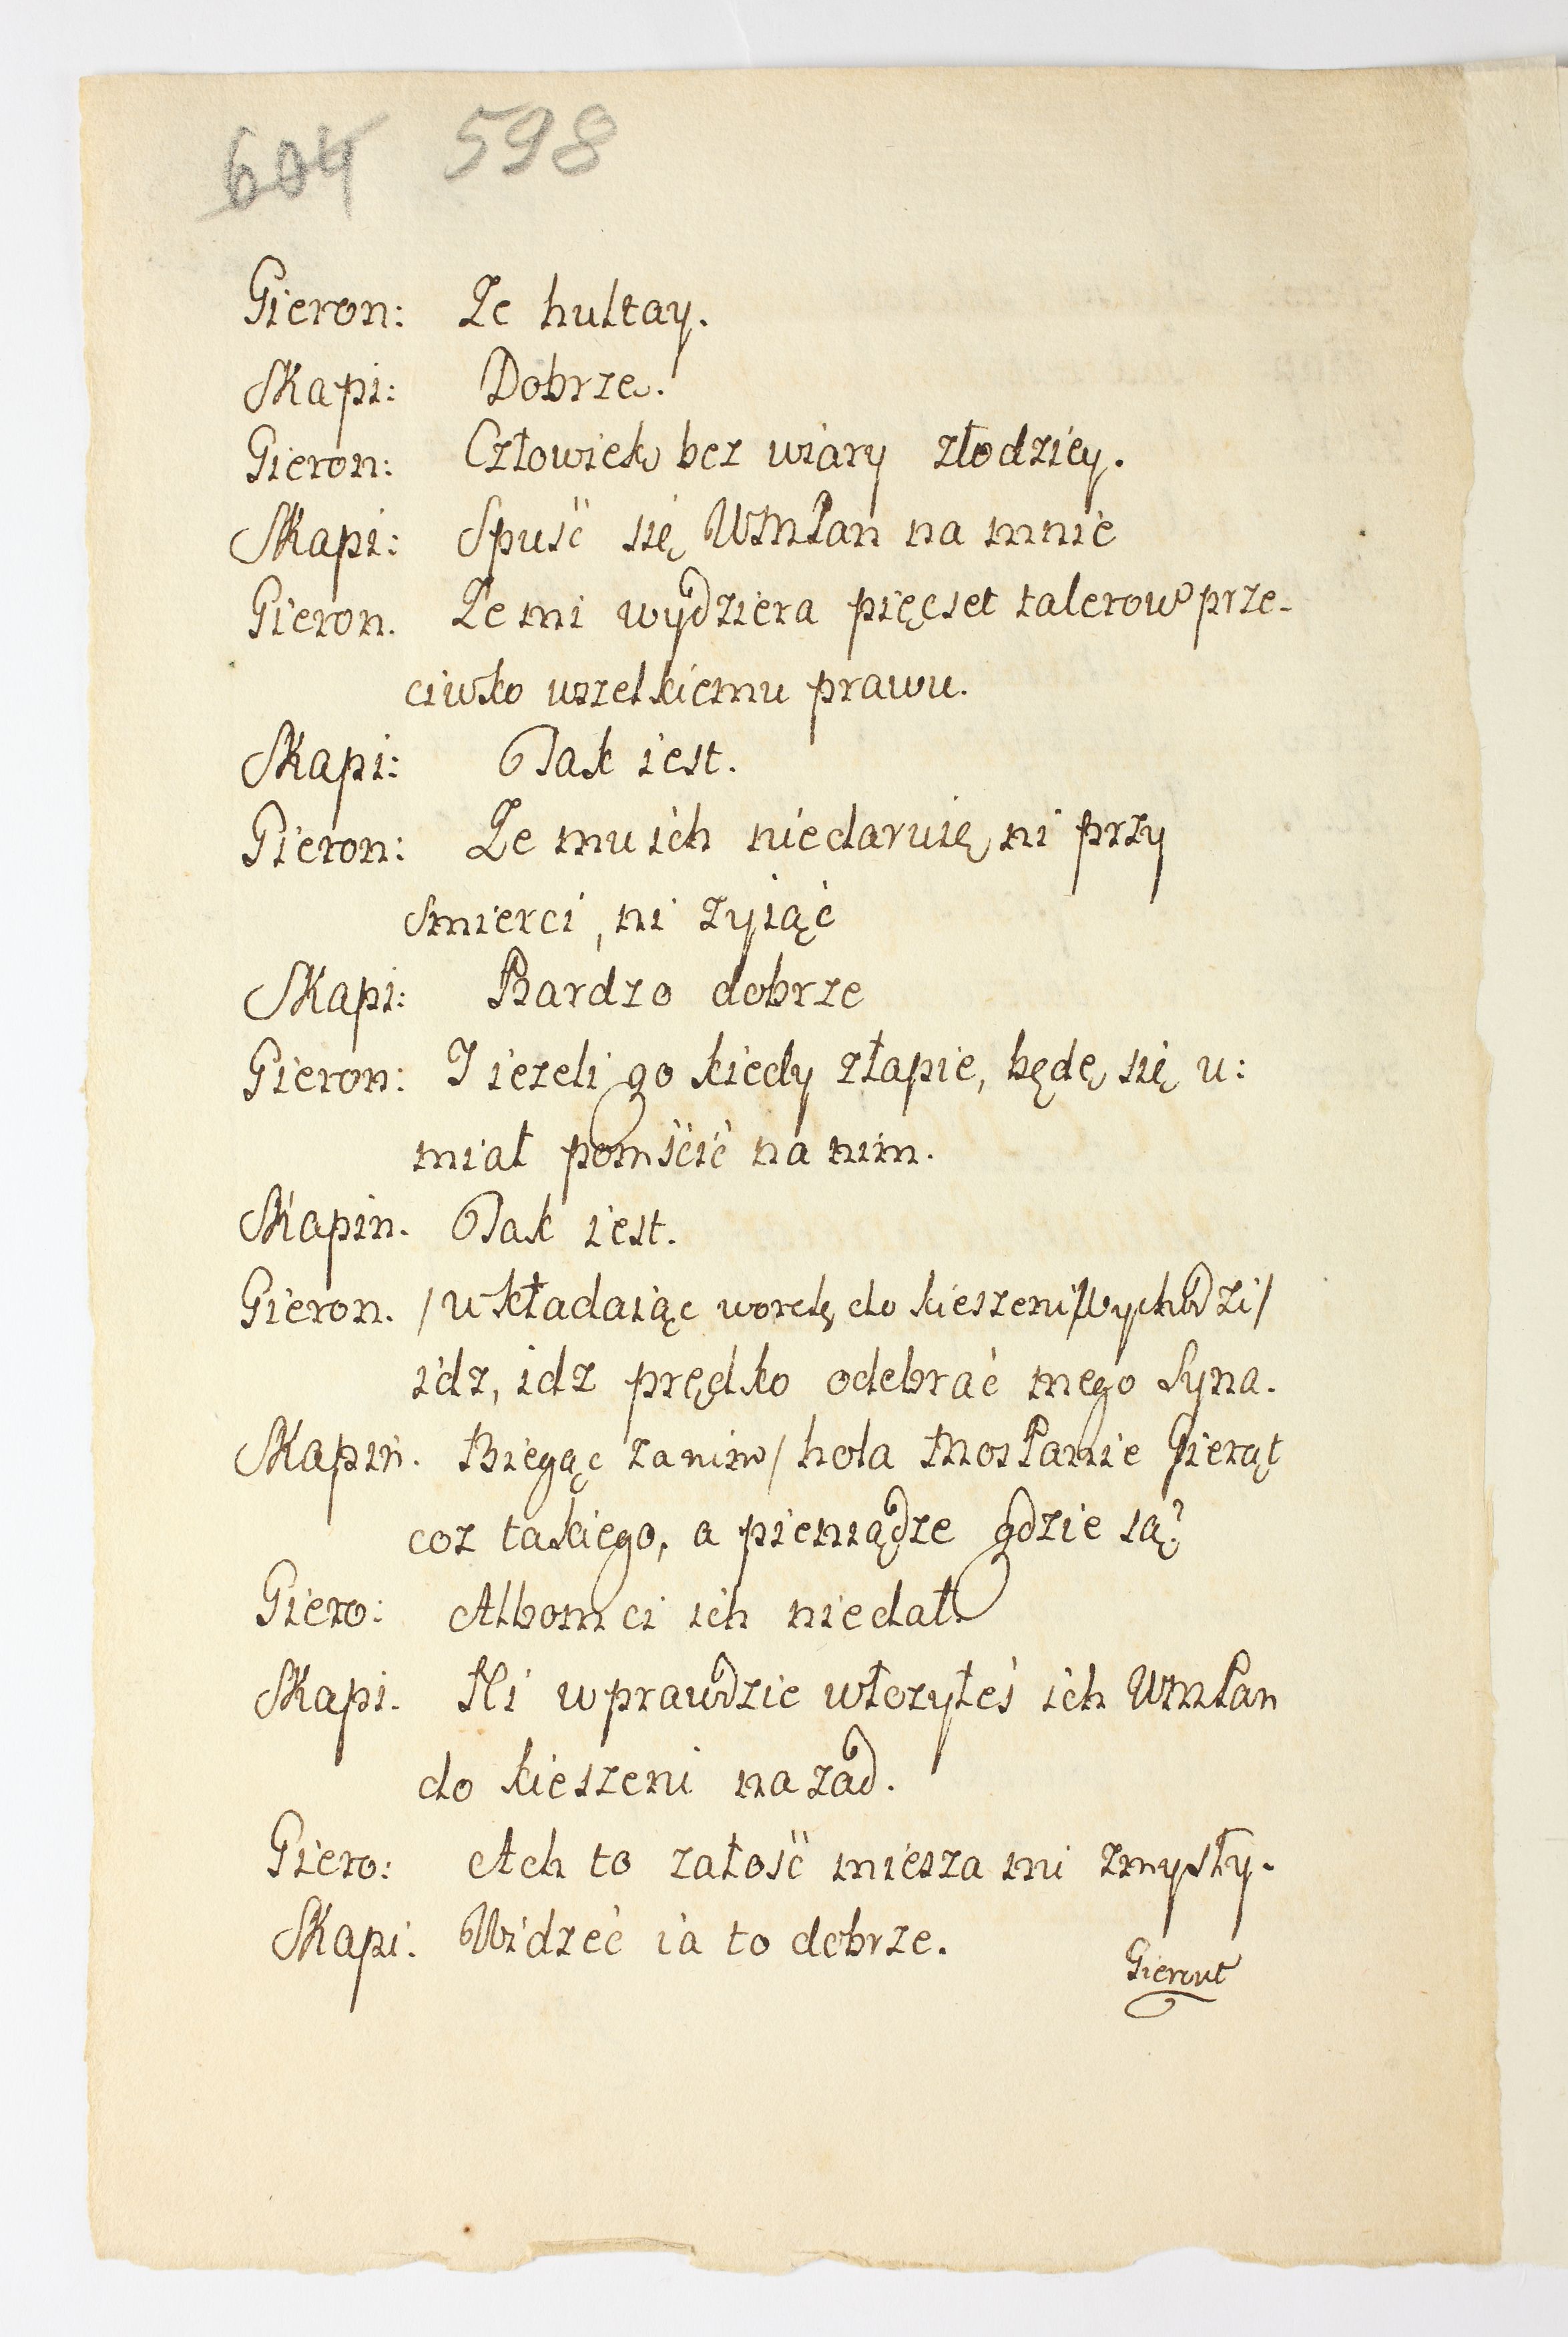 604 598
Gieron: Ze hultay.
Skapi: Dobrze.
Gieron: Człowiek bez wiary złodziey.
Skapi: Spuść się WMPan na mnie
Gieron. Ze mi wydziera pięcset talerow prze-
ciwko wszelkiemu prawu.
Skapi: Tak iest.
Gieron: Ze mu ich niedaruię ni przy
smierci, ni zyiąć
Skapi: Bardzo dobrze
Gieron: J iezeli go kiedy złapie, będę się u:
miał pomścić na nim.
Skapin. Tak iest.
Gieron. /wkładaiąc worek do kieszeni/wychodzi/
idz, idz prędko odebrać mego Syna.
Skapin. Biegąc za nim/ hola MosPanie Gierąt
coz takiego, a pieniądze gdzie są?
Giero: Albom ci ich niedał.
Skapi. Ni wprawdzie włozyłeś ich WMPan
do kieszeni nazad.
Giero: Ach to załość miesza mi zmysły.
Skapi. Widzeć ia to dobrze.
Gieront